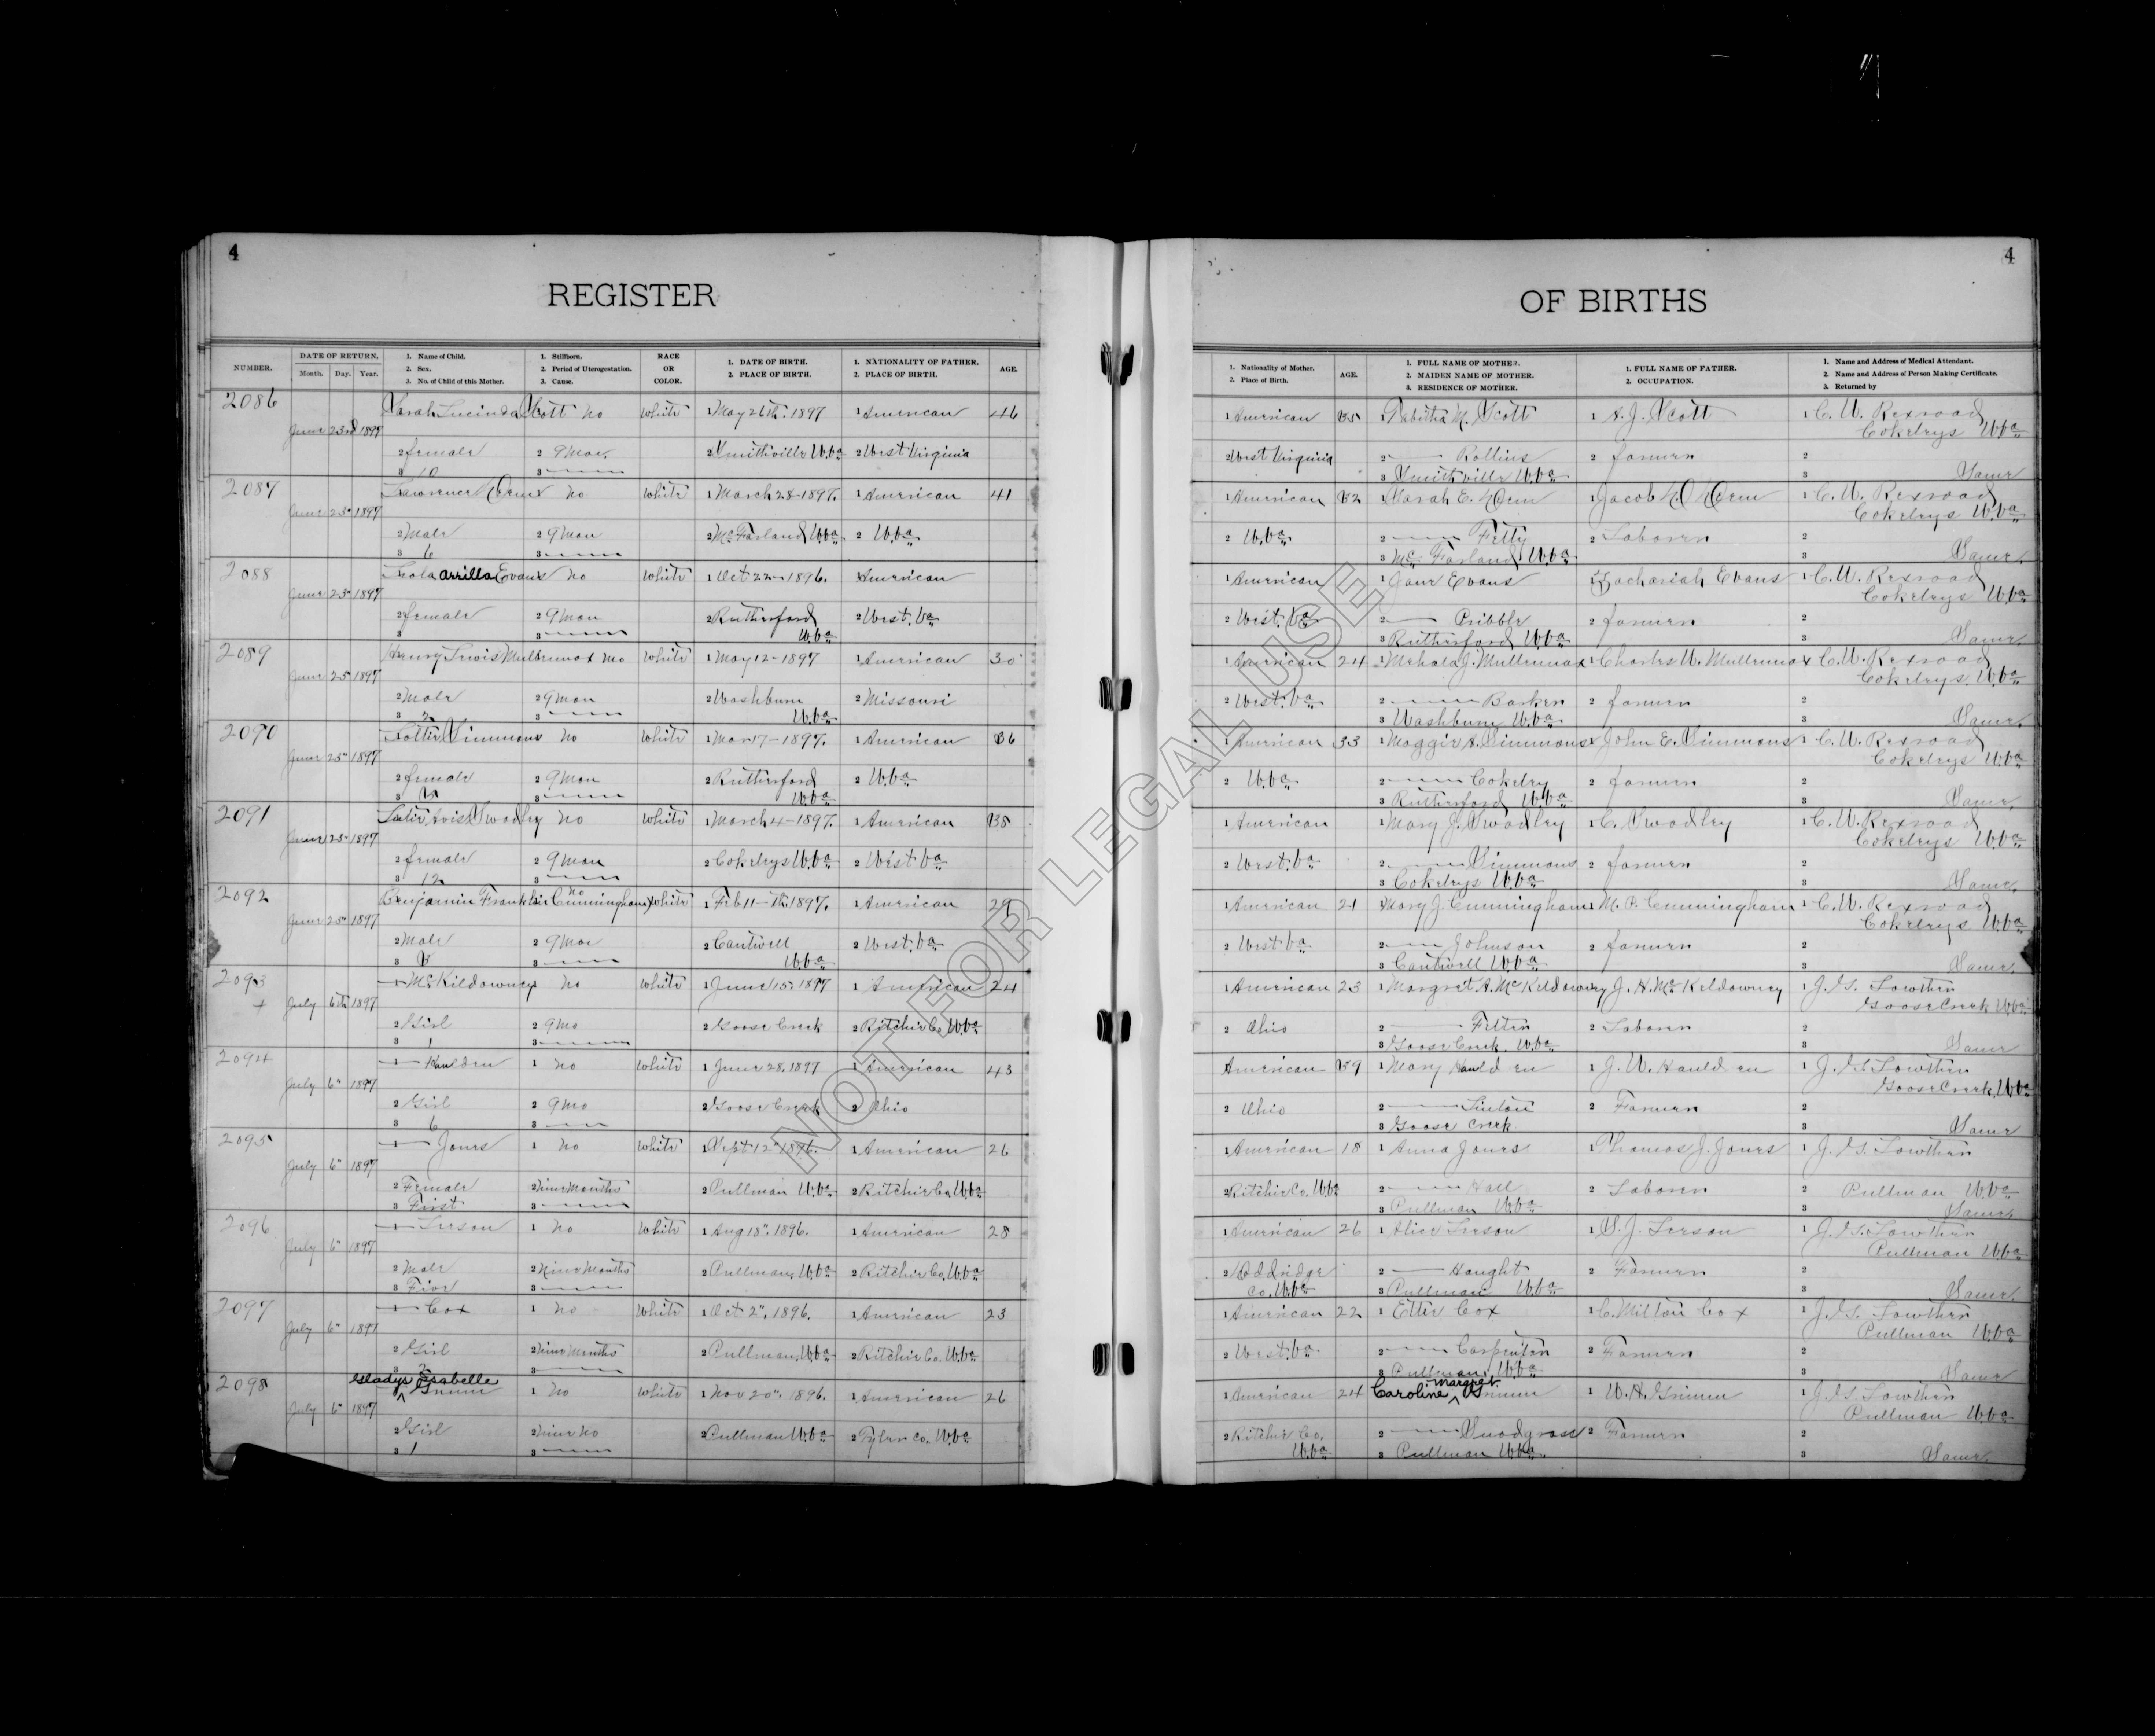 4
REGISTER
NUMBER. DATE OF RETURN. Month. Day. Year. 1. Name of Child. 2. Sex. 3. No. of Child of this Mother. 1. Stillborn. 2. Period of Uterogestation. 3. Cause. RACE OR COLOR. 1. DATE OF BIRTH. 2. PLACE OF BIRTH. 1. NATIONALITY OF FATHER. 2. PLACE OF BIRTH. AGE.
2086 June 23rd 1897 Sarah Lucinda Scott no White 1 May 26th 1897 1 American 46
2 female 2 9 mon. 2 Smithville W.Va 2 West Virginia
3 10 3
2087 June 25" 1897 Lawrence no White 1 March 28-1897. 1 American 41
2 Male 2 9 mon 2 McFarland W.Va 2 W.Va
3 6 3
2088 June 25" 1897 Leola Arrilla Evans no White 1 Oct 22-1896. American
2 female 2 9 mon 2 Rutherford W.Va 2 West. Va
3 3
2089 June 25" 1897 Henry Lewis Mullennax no White 1 May 12-1897 1 American 30
2 Male 2 9 mon 2 Washburn W.Va 2 Missouri
3 2 3
2090 June 25" 1897 Lottie Simmons no White 1 Mar 17-1897. 1 American 36
2 female 2 9 mon 2 Rutherford W.Va 2 W.Va
3 3
2091 June 25" 1897 Swadley no White 1 March 4-1897. 1 American 38
2 female 2 9 mon 2 Cokeleys W.Va 2 West. Va
3 12 3
2092 June 25" 1897 Benjamin Franklin Cunningham no White 1 Feb 11-th 1897. 1 American 29
2 Male 2 9 mon 2 Cantwell W.Va 2 West. Va
3 3
2093 + July 6th 1897 1 McKildowney no White 1 June 15, 1897 1 American 24
2 Girl 2 9 mo 2 Goose Creek 2 Ritchie Co W.Va
3 1 3
2094 July 6" 1897 1 Haulden 1 no White 1 June 28, 1897 1 American 43
2 Girl 2 9 mo 2 Goose Creek 2 Ohio
3 6 3
2095 July 6" 1897 1 Jones 1 no White 1 Sept 12" 1896. 1 American 26
2 Female 2 nine Months 2 Pullman W.Va 2 Ritchie Co W.Va
3 First 3
2096 July 6" 1897 1 Leeson 1 no White 1 Aug 18". 1896. 1 American 28
2 Male 2 Nine Months 2 Pullman, W.Va 2 Ritchie Co. W.Va
3 Five 3
2097 July 6" 1897 1 Cox 1 no White 1 Oct 2". 1896. 1 American 23
2 Girl 2 Nine Months 2 Pullman, W.Va 2 Ritchie Co. W.Va
3 2 3
2098 July 6" 1897 Gladys Isabelle Grimm 1 no White 1 Nov 20". 1896. 1 American 26
2 Girl 2 nine mo 2 Pullman W.Va 2 Tyler Co. W.Va
3 1 3
4
OF BIRTHS
1. Nationality of Mother. 2. Place of Birth. AGE. 1. FULL NAME OF MOTHER. 2. MAIDEN NAME OF MOTHER. 3. RESIDENCE OF MOTHER. 1. FULL NAME OF FATHER. 2. OCCUPATION. 1. Name and Address of Medical Attendant. 2. Name and Address of Person Making Certificate. 3. Returned by
1 American 35 1 Tabitha M. Scott 1 A. J. Scott 1 C. W. Rexroad Cokeleys W.Va
2 West Virginia 2 Rollins 2 farmer 2
3 Smithville W.Va 3 Same
1 American 32 1 Sarah E. 1 Jacob 1 C. W. Rexroad Cokeleys W.Va
2 W.Va 2 Fetty 2 Laborer 2
3 McFarland W.Va 3 Same.
1 American 1 Jane Evans 1 Zachariah Evans 1 C. W. Rexroad Cokeleys W.Va
2 West. Va 2 Pribble 2 farmer 2
3 Rutherford W.Va 3 Same
1 American 24 1 Mahala J. Mullennax 1 Charles W. Mullennax C. W. Rexroad Cokeleys. W.Va
2 West. Va 2 Barker 2 farmer 2
3 Washburn W.Va 3 Same.
1 American 33 1 Maggie A. Simmons 1 John E. Simmons 1 C. W. Rexroad Cokeleys W.Va
2 W.Va 2 Cokeley 2 farmer 2
3 Rutherford W.Va 3 Same.
1 American 1 Mary J. Swadley 1 C. Swadley 1 C. W. Rexroad Cokeleys W.Va
2 West. Va 2 Simmons 2 farmer 2
3 Cokeleys W.Va 3 Same.
1 American 21 1 Mary J. Cunningham 1 M. P. Cunningham 1 C. W. Rexroad Cokeleys W.Va
2 West Va 2 Johnson 2 farmer 2
3 Cantwell W.Va 3 Same.
1 American 23 1 Margret A. McKildowney J. H. McKildowney 1 J. G. Lowther Goose Creek W.Va
2 Ohio 2 2 Laborer 2
3 Goose Creek. W.Va 3 Same
American 39 1 Mary Haulden 1 J. W. Haulden 1 J. G. Lowther Goose Creek, W.Va
2 Ohio 2 Linton 2 Farmer 2
3 Goose Creek. 3 Same
1 American 18 1 Anna Jones 1 Thomas J. Jones 1 J. G. Lowther
2 Ritchie Co. W.Va 2 Hall 2 Laborer 2 Pullman W.Va
3 Pullman W.Va 3 Same.
1 American 26 1 Alice Leeson 1 S. J. Leeson 1 J. G. Lowther Pullman W.Va
2 Doddridge Co. W.Va 2 Haught 2 Farmer 2
3 Pullman W.Va 3 Same.
1 American 22 1 Ettie Cox 1 C. Milton Cox 1 J. G. Lowther Pullman W.Va
2 West. Va 2 Carpenter 2 Farmer 2
3 Pullman, W.Va 3 Same
1 American 24 Caroline Margret Grimm 1 W. H. Grimm 1 J. G. Lowther Pullman W.Va
2 Ritchie Co. W.Va 2 Snodgrass 2 Farmer 2
3 Pullman W.Va. 3 Same.
NOT FOR LEGAL USE